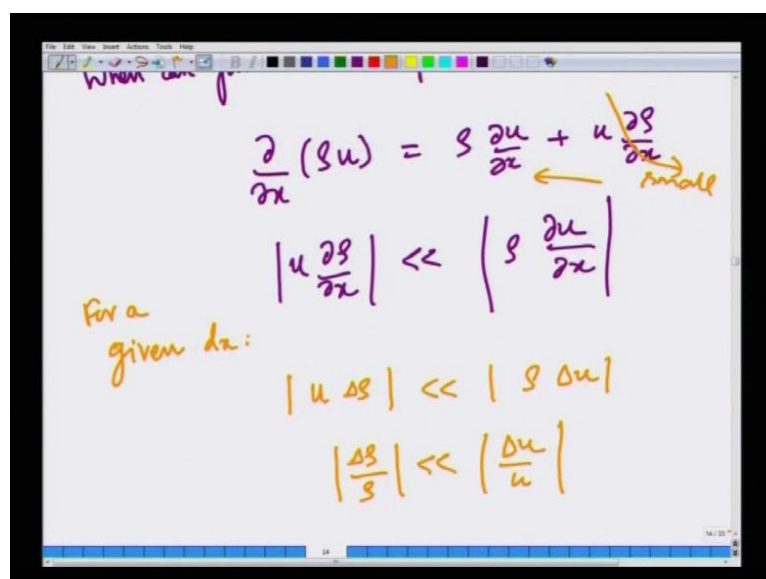 File Edit View Insert Actions Tools Help
When can
∂/∂x (ρu) = ρ ∂u/∂x + u ∂ρ/∂x
small
|u ∂ρ/∂x| << |ρ ∂u/∂x|
For a
given dx:
|u Δρ| << |ρ Δu|
|Δρ/ρ| << |Δu/u|
14
14/33